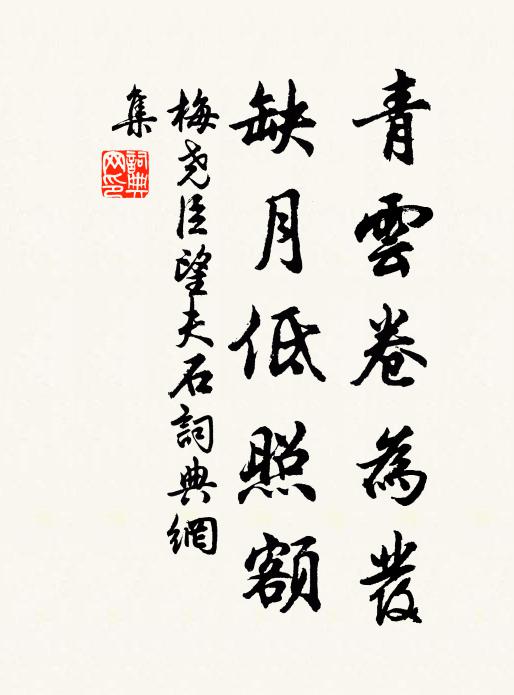 青雲卷為發
缺月低照額
梅堯臣望夫石詞典網
集
詞典
网印